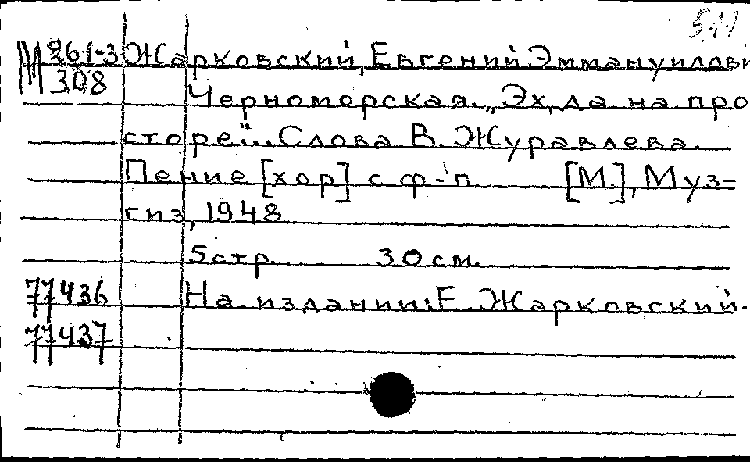 М 261-3 Жарковский, Евгений Эммануилови
308 Черноморская. „Эх, да на про
сторе”... Слова В. Журавлева.
Пение [хор] с ф-п. [М.], Муз=
гиз, 1948
5 стр. 30 см.
77436 На издании: Е. Жарковский.
77437